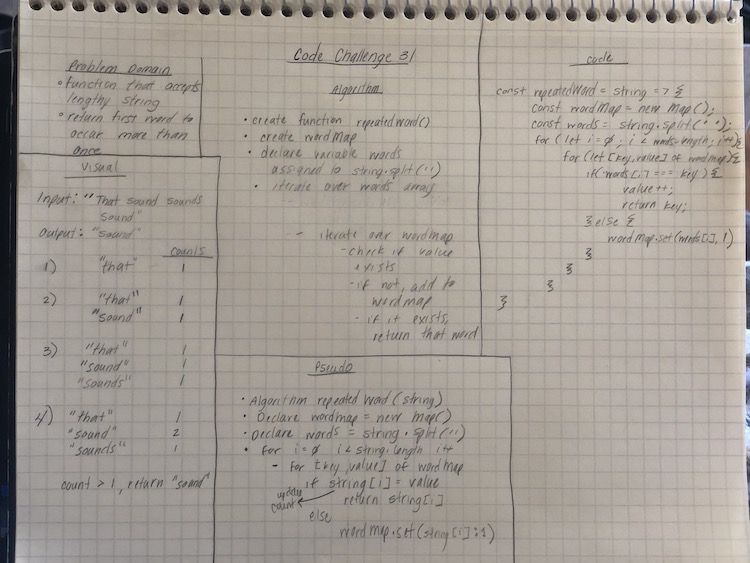 Code Challenge 31
Problem Domain
• function that accepts
lengthy string
• return first word to
occur more than
once
Visual
Input: "That sound sounds
sound"
Output: "sound"
counts
1) "that" 1
2) "that" 1
"sound" 1
3) "that" 1
"sound" 1
"sounds" 1
4) "that" 1
"sound" 2
"sounds" 1
count > 1, return "sound"
Algorithm
• create function repeatedWord()
• create wordMap
• declare variable words
assigned to string.split(' ')
• iterate over words array
- iterate over wordmap
- check if value
exists
- if not, add to
wordmap
- if it exists,
return that word
Pseudo
• Algorithm repeated word (string)
• Declare wordmap = new map()
• Declare words = string.split(' ')
• for i=0 i<string.length i++
- for [key,value] of wordmap
if string[i] = value
update
count ← return string[i]
else
wordmap.set(string[i]:1)
code
const repeatedWord = string => {
const wordMap = new Map();
const words = string.split(' ');
for (let i=0; i < words.length; i++){
for(let [key,value] of wordmap){
if(words[i] === key){
value++;
return key;
} else {
wordMap.set(words[i], 1)
}
}
}
}